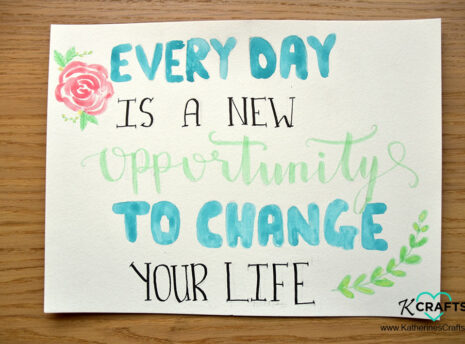 EVERY DAY
IS A NEW
opportunity
TO CHANGE
YOUR LIFE
K CRAFTS
www.KatherinesCrafts